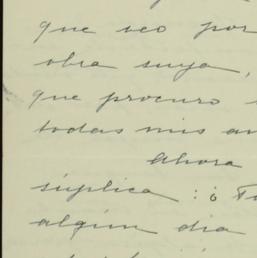 que veo por
obra suya,
que procuro
todas mis
Ahora
súplica : ó
algún día